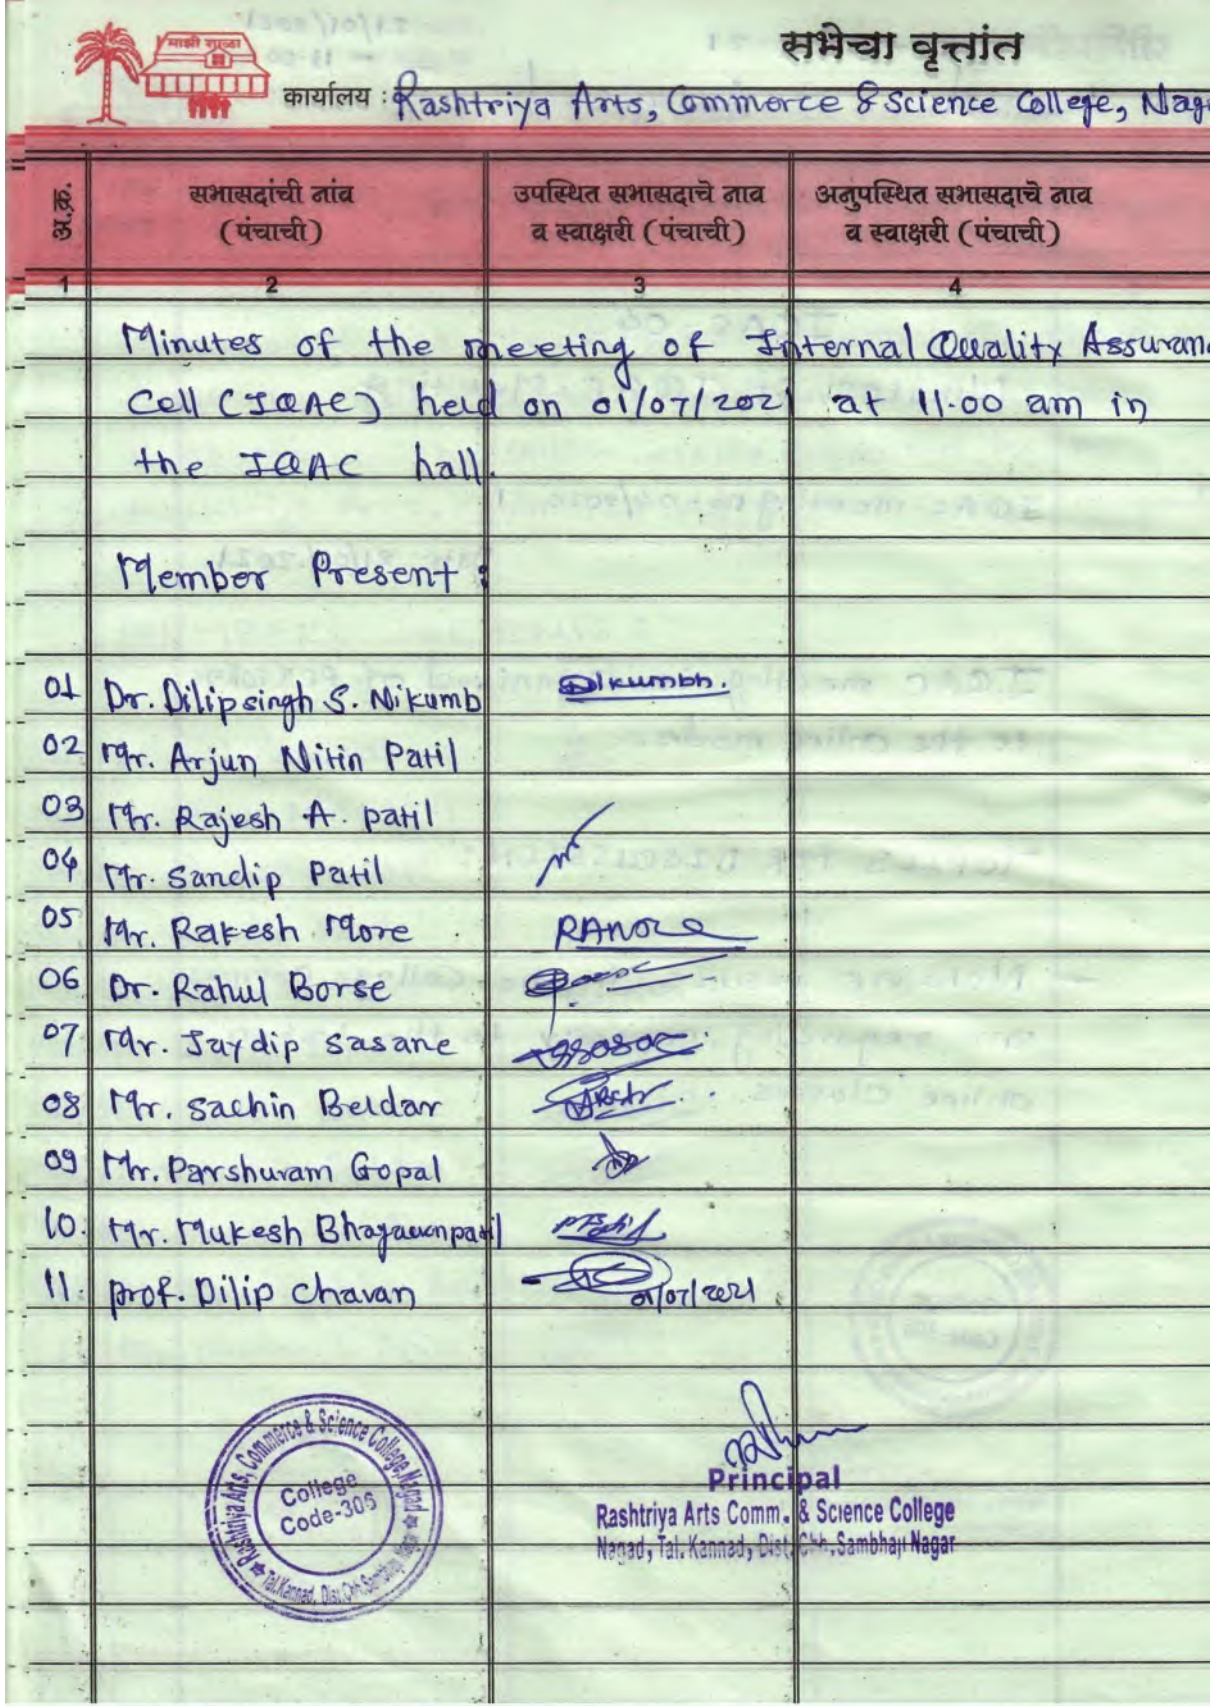 माझी शाळा
सभेचा वृत्तांत
कार्यालय : Rashtriya Arts, Commerce & Science College,
अ.क्र.
सभासदांची नांव
(पंचाची)
उपस्थित सभासदाचे नाव
व स्वाक्षरी (पंचाची)
अनुपस्थित सभासदाचे नाव
व स्वाक्षरी (पंचाची)
1 2 3 4
Minutes of the meeting of Internal Quality Assuran
Cell (IQAC) held on 01/07/2021 at 11.00 am in
the IQAC hall.
Member Present :
01 Dr. Dilipsingh S. Nikumb Nikumbh.
02 Mr. Arjun Nitin Patil
03 Mr. Rajesh A. patil
04 Mr. Sandip Patil
05 Mr. Rakesh More RAMore
06 Dr. Rahul Borse
07 Mr. Jaydip sasane
08 Mr. Sachin Beldar
09 Mr. Parshuram Gopal
10. Mr. Mukesh Bhagawanpatil
11. prof. Dilip chavan 01/07/2021
Rashtriya Arts, Commerce & Science College, Nagad
College
Code-306
Tal.Kannad, Dist.Chh.Sambhaji Nagar
Principal
Rashtriya Arts Comm. & Science College
Nagad, Tal. Kannad, Dist. Chh. Sambhaji Nagar